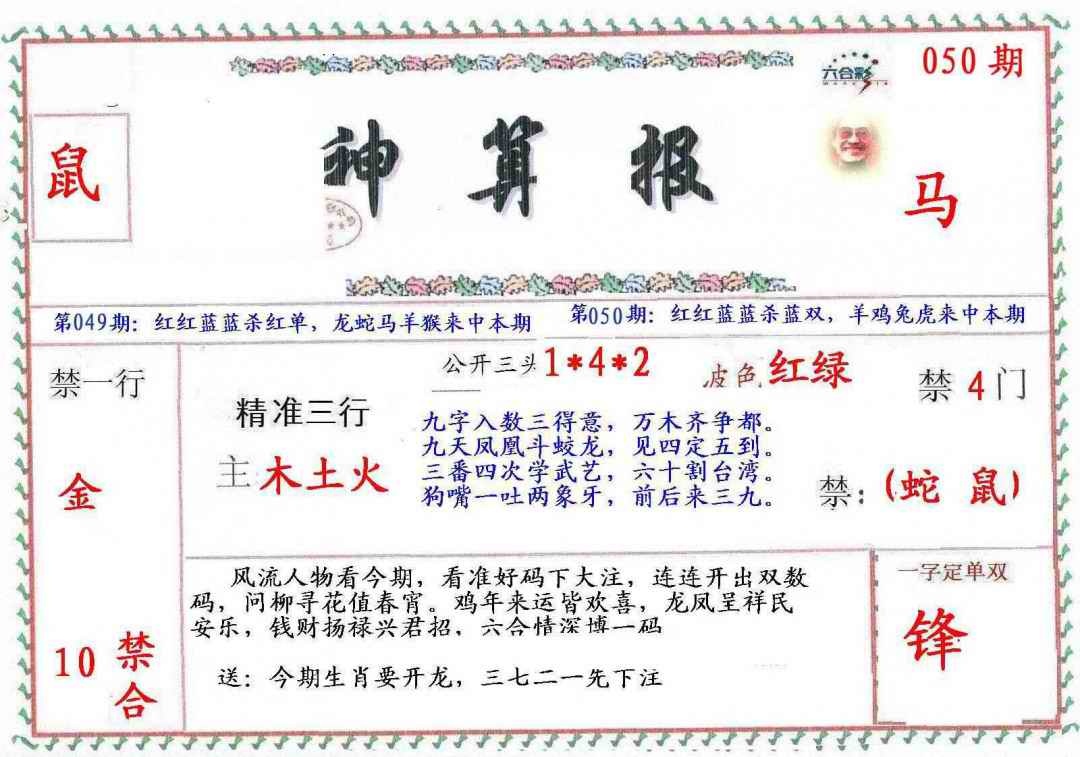 六合彩
050期
鼠
神算报
马
第049期：红红蓝蓝杀红单，龙蛇马羊猴来中本期
第050期：红红蓝蓝杀蓝双，羊鸡兔虎来中本期
禁一行
金
10禁合
公开三头1*4*2
波色 红绿
禁4门
精准三行
主木土火
九字入数三得意，万木齐争都。
九天凤凰斗蛟龙，见四定五到。
三番四次学武艺，六十割台湾。
狗嘴一吐两象牙，前后来三九。
禁：（蛇 鼠）
风流人物看今期，看准好码下大注，连连开出双数
码，问柳寻花值春宵。鸡年来运皆欢喜，龙凤呈祥民
安乐，钱财扬禄兴君招，六合情深博一码
送：今期生肖要开龙，三七二一先下注
一字定单双
锋